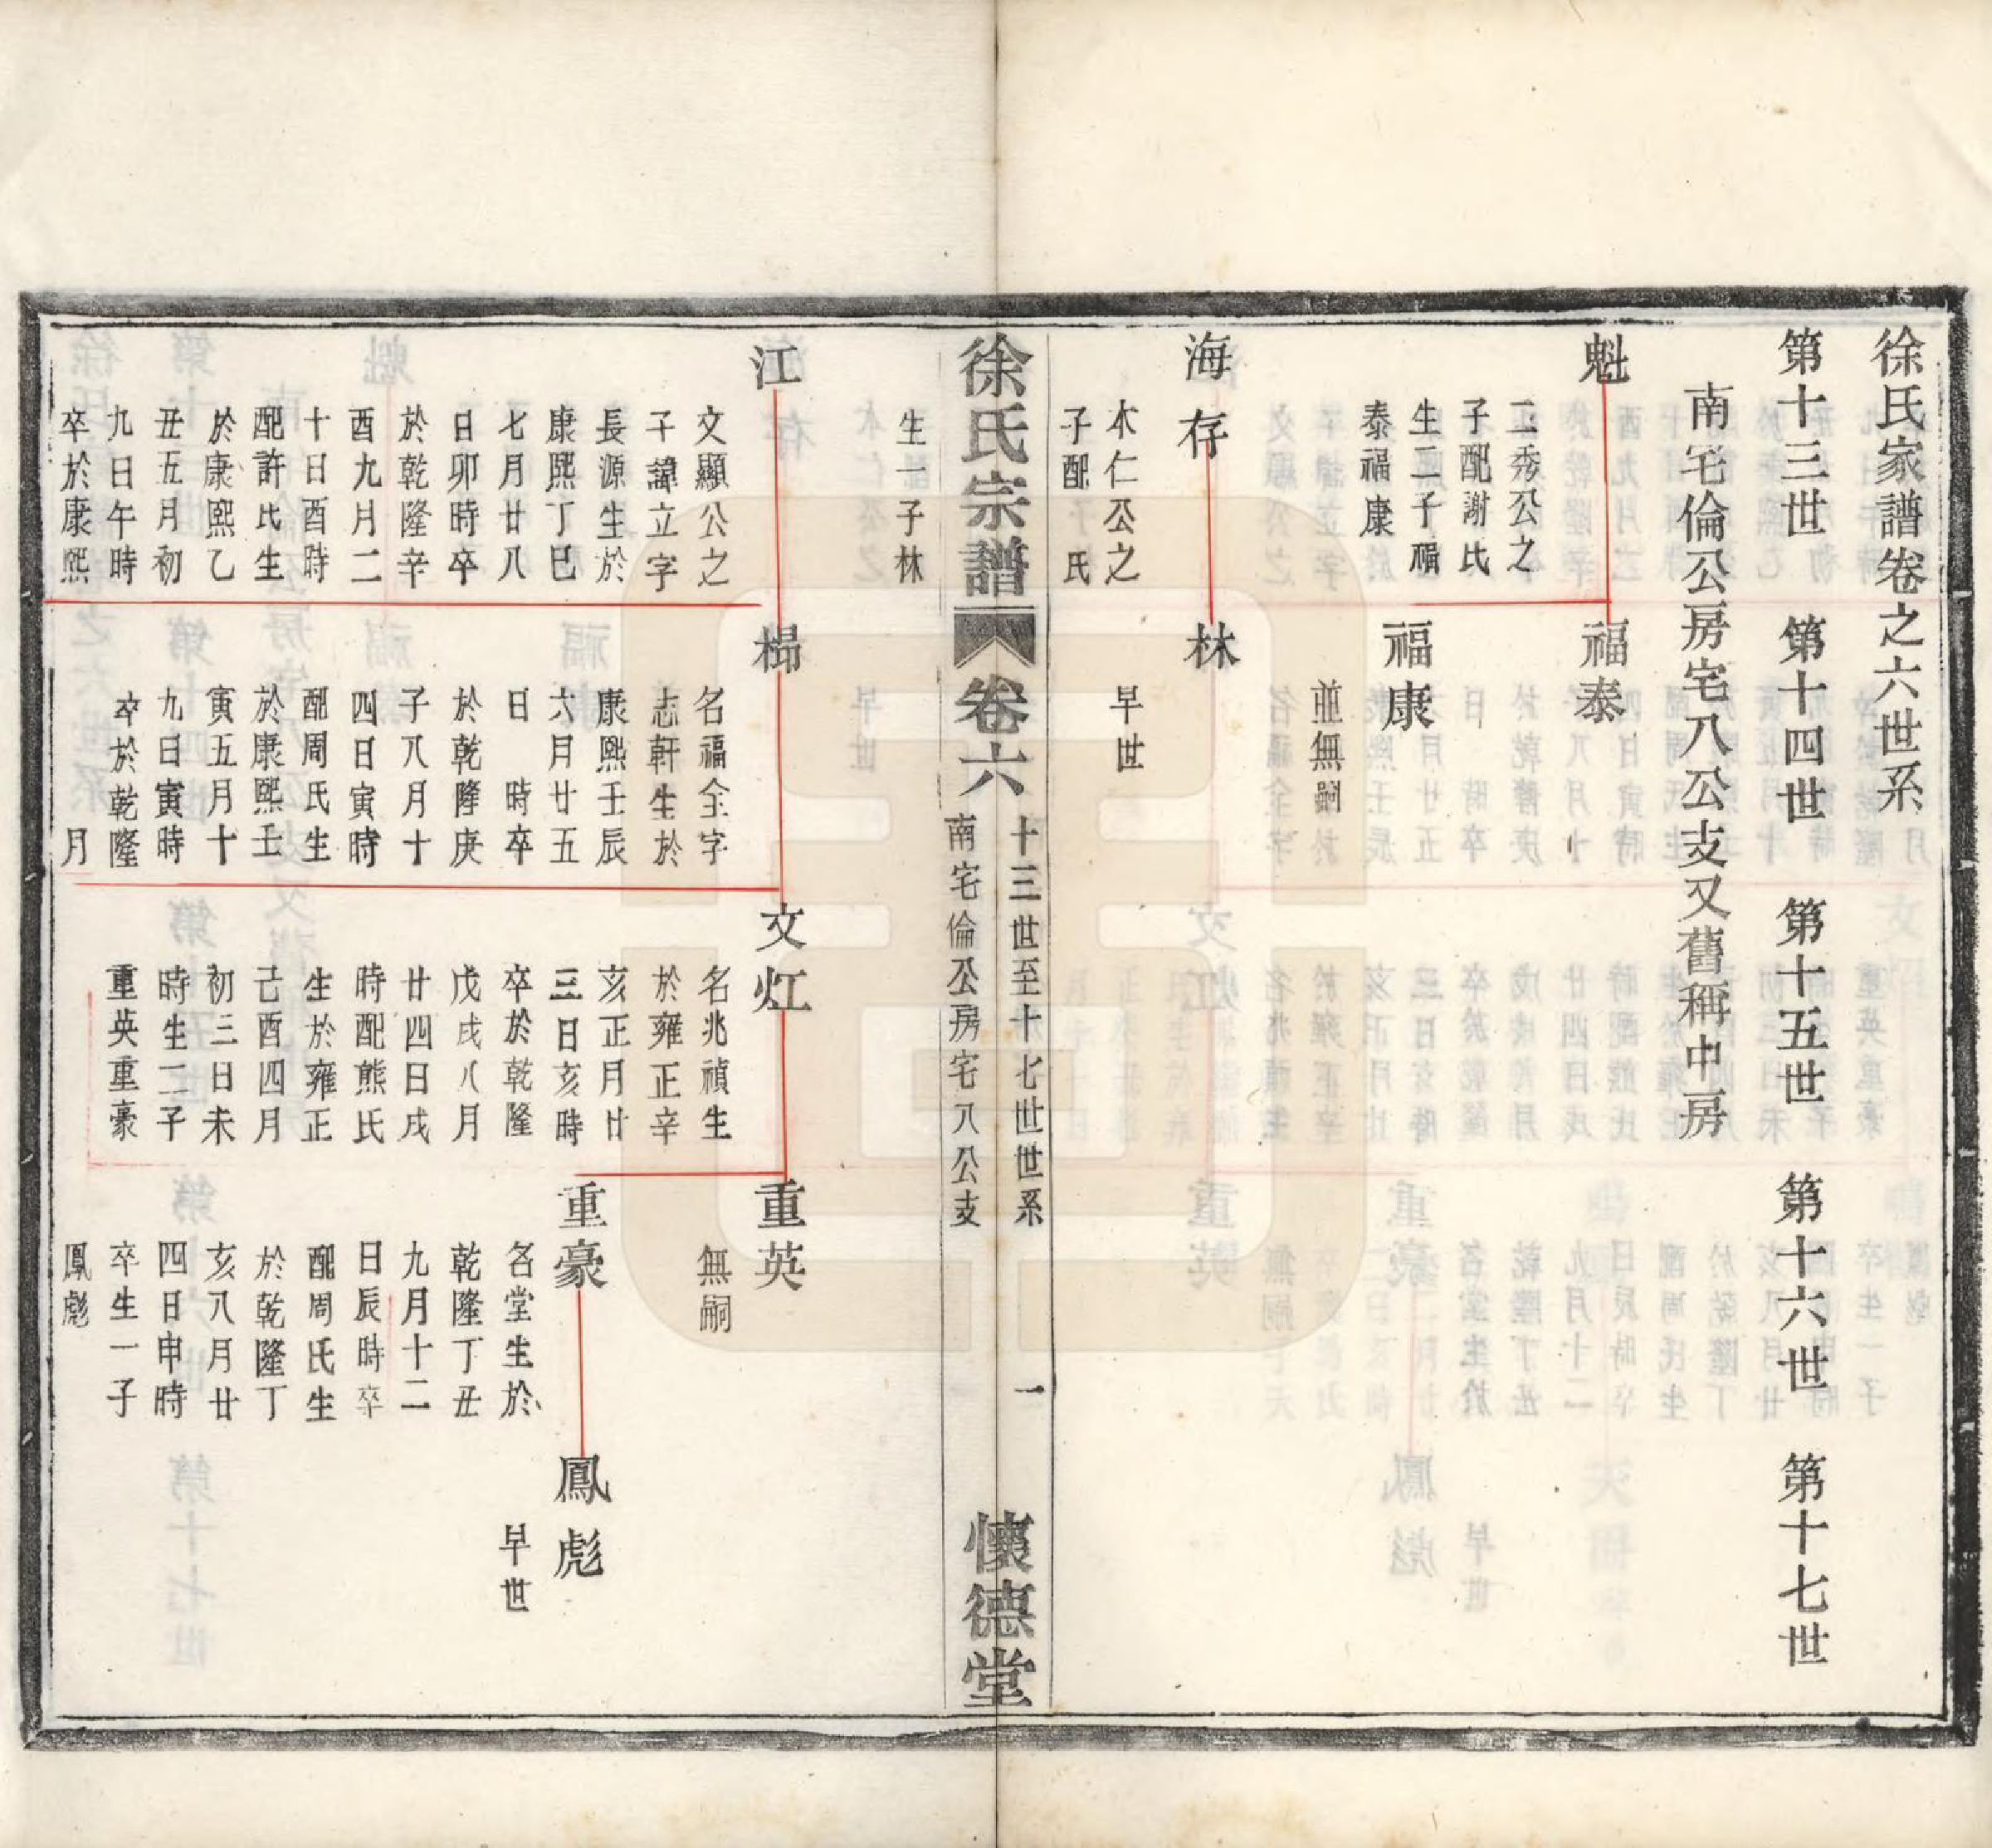 徐氏家譜卷之六世系
第十三世　第十四世　第十五世　第十六世　第十七世
南宅倫公房宅八公支又舊稱中房
魁
二秀公之
子配謝氏
生二子福
泰福康
福泰
福康
並無嗣
海存
木仁公之
子配　氏
生一子林
林
早世
徐氏宗譜　卷六
十三世至十七世世系
南宅倫公房宅八公支
一
懷德堂
江
文顯公之
子諱立字
長源生於
康熙丁巳
七月廿八
日卯時卒
於乾隆辛
酉九月二
十日酉時
配許氏生
於康熙乙
丑五月初
九日午時
卒於康熙
名福全字
志軒生於
康熙壬辰
六月廿五
日　時卒
於乾隆庚
子八月十
四日寅時
配周氏生
於康熙壬
寅五月十
九日寅時
卒於乾隆
月
文灴
名兆禎生
於雍正辛
亥正月廿
三日亥時
卒於乾隆
戊戌八月
廿四日戌
時配熊氏
生於雍正
己酉四月
初三日未
時生二子
重英重豪
重英
無嗣
重豪
名堂生於
乾隆丁丑
九月十二
日辰時卒
配周氏生
於乾隆丁
亥八月廿
四日申時
卒生一子
鳳彪
鳳彪
早世